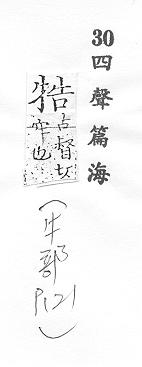 30四聲篇海
牿古督切
牢也
(牛部
P.121)